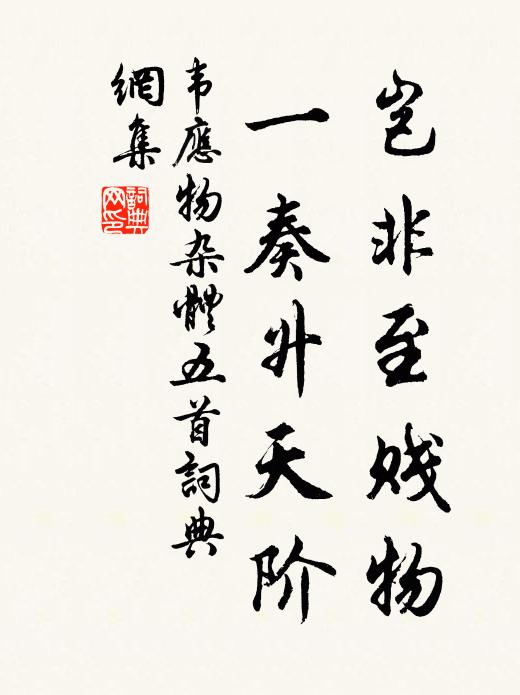 岂非至贱物
一奏升天阶
韦應物杂體五首詞典
網集
詞典
网印